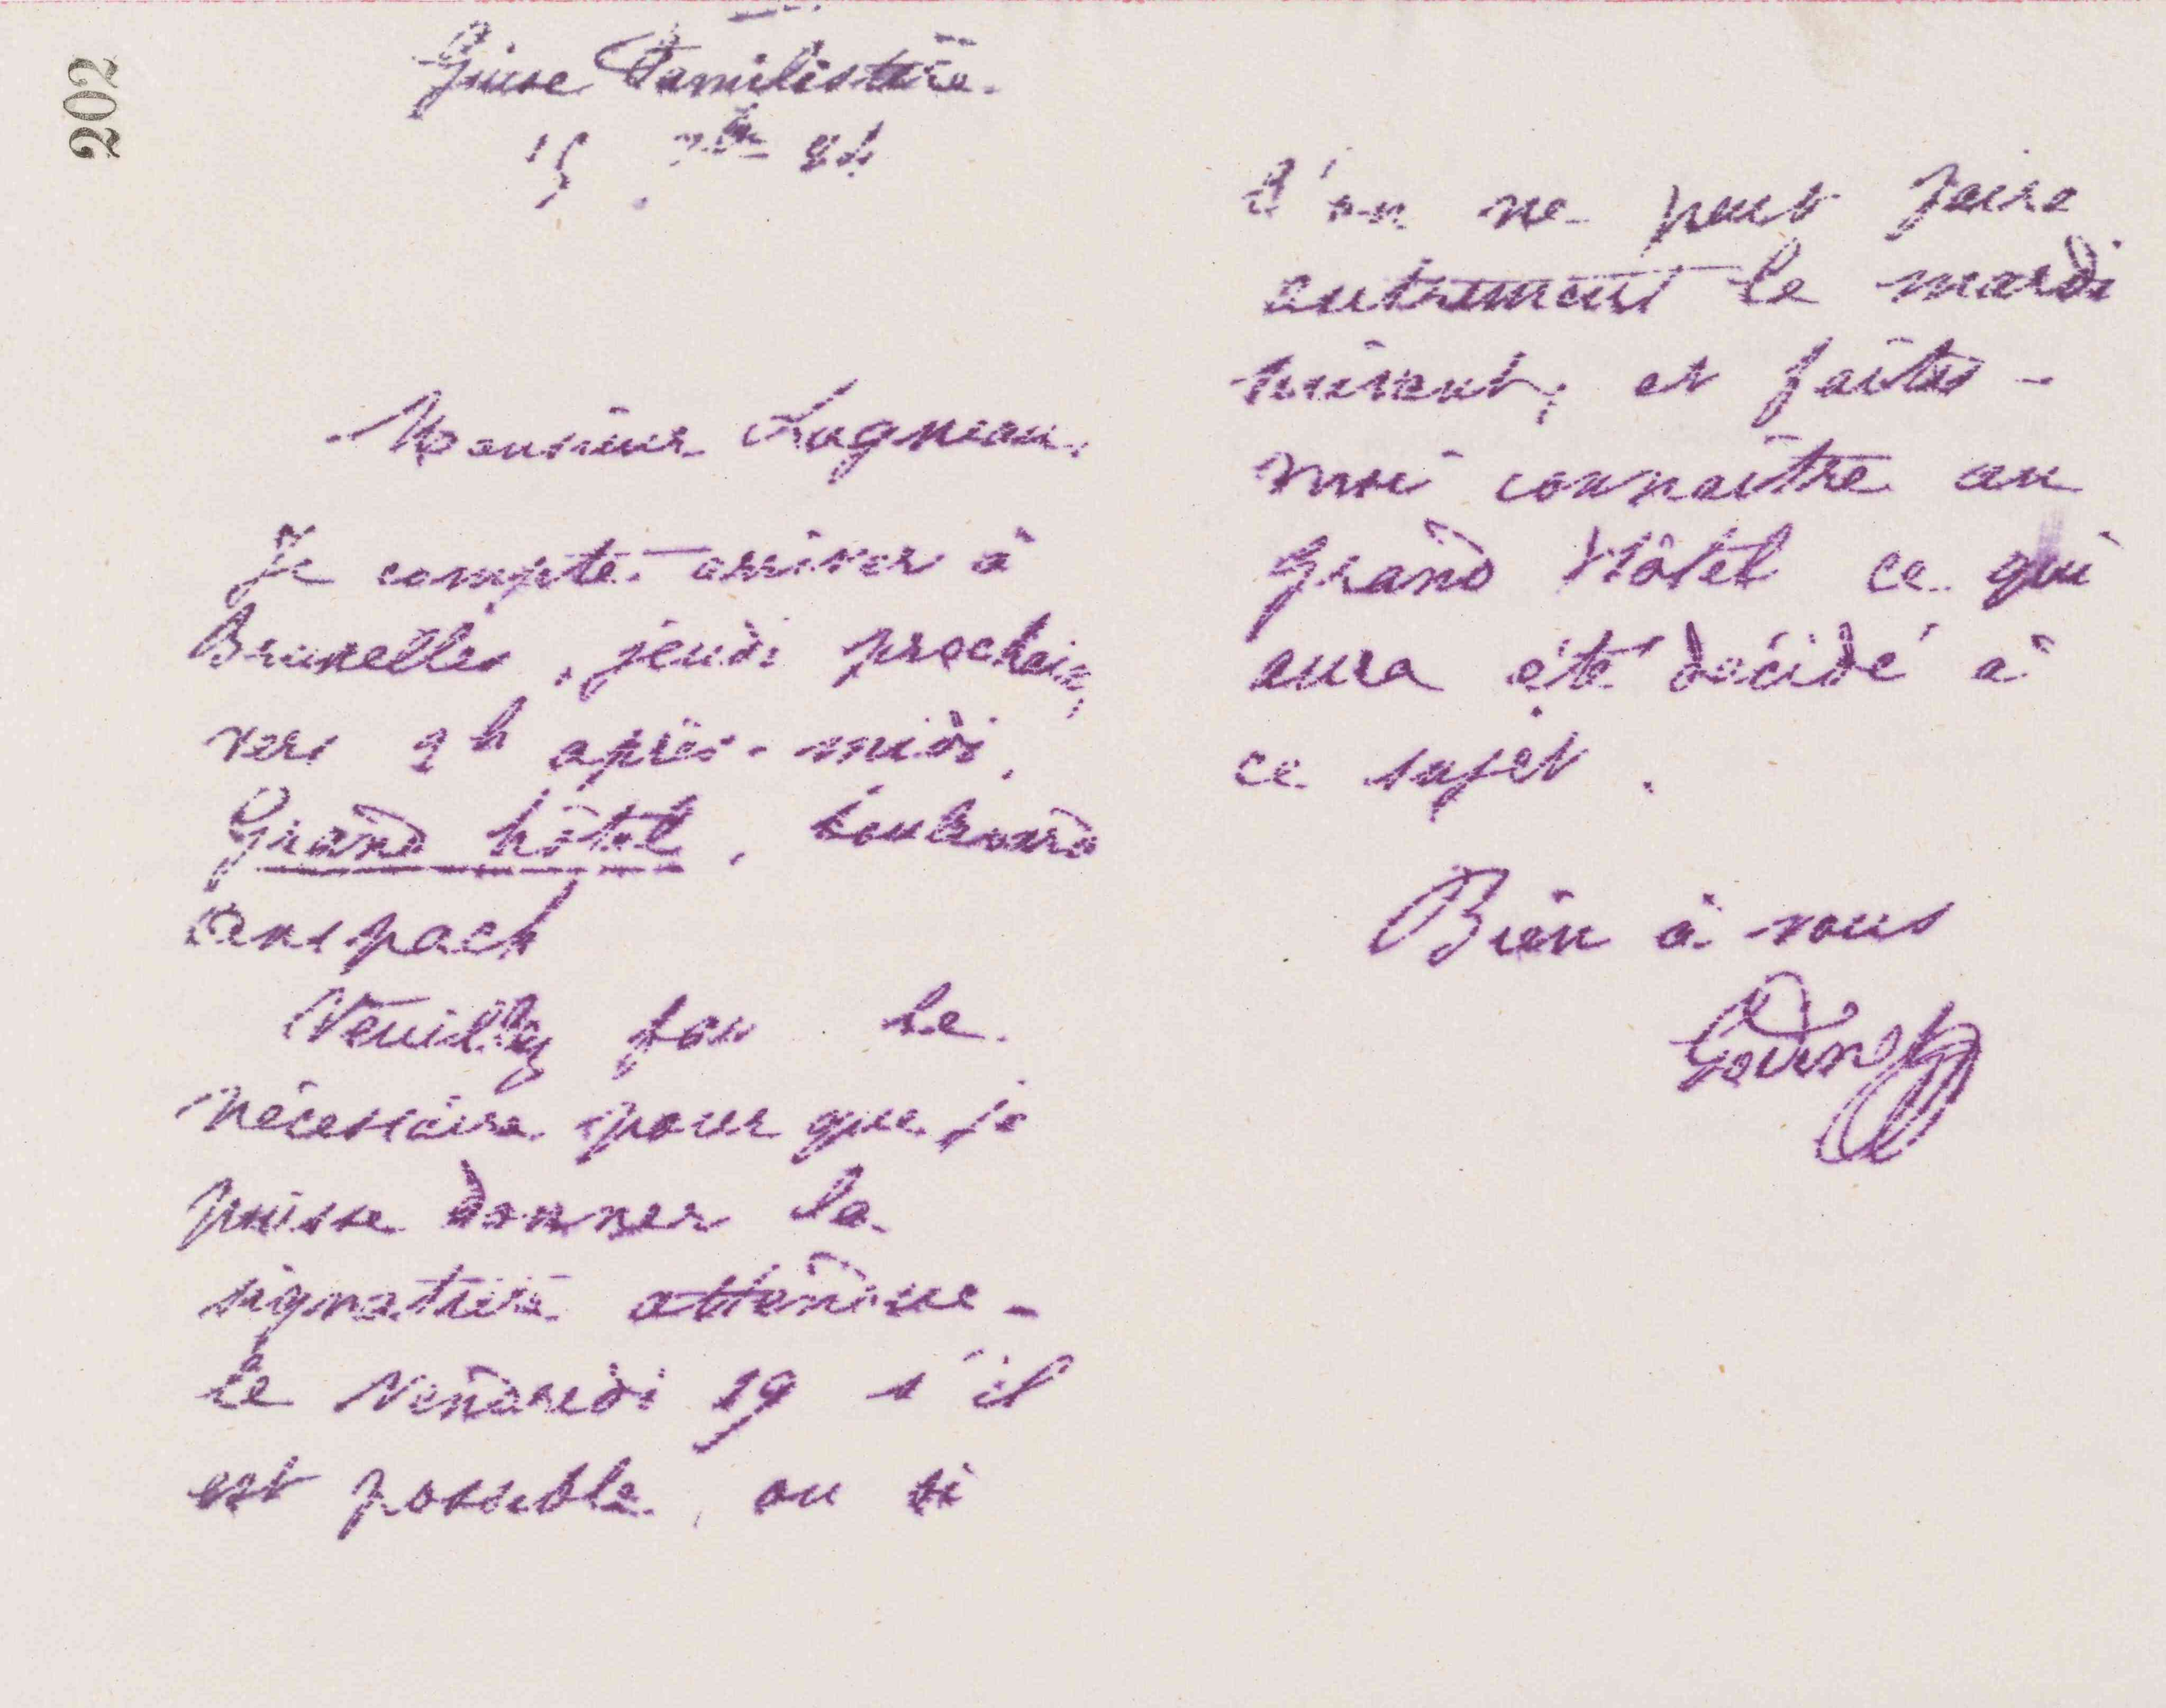 202
Guise Familistère.
15 7bre 84
Monsieur Lagneau.
Je compte arriver à
Bruxelles, jeudi prochain,
vers 2h après-midi,
Grand hôtel, boulevard
anspach
Veuillez le
nécessaire pour que je
puisse donner la
signature attendue -
le vendredi 19 s'il
est possible, ou si
l'on ne peut faire
autrement le mardi
suivant; et faites-
moi connaître au
Grand Hôtel ce qui
aura été décidé à
ce sujet.
Bien à vous
Godin